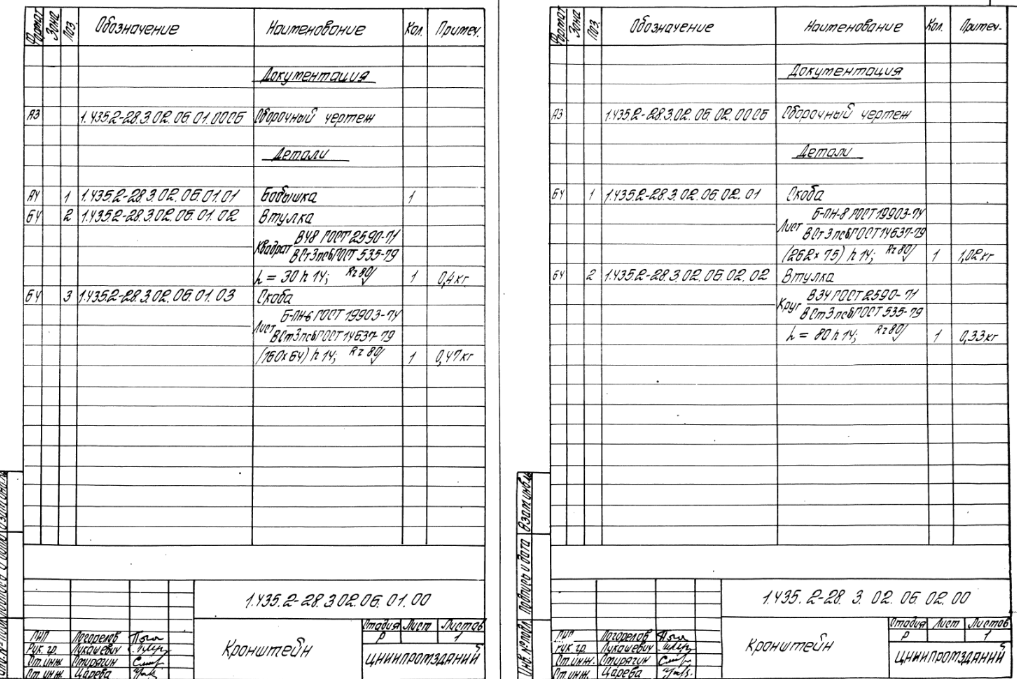 Формат Зона Поз. Обозначение Наименование Кол. Примеч.
Документация
А3 1.435.2-28.3.02.06.01.00СБ Сборочный чертеж
Детали
А4 1 1.435.2-28.3.02.06.01.01 Бобышка 1
БЧ 2 1.435.2-28.3.02.06.01.02 Втулка
Квадрат В48 ГОСТ 2590-71
ВСт3псбГОСТ 535-79
L = 30 h 14; Rz 80/ 1 0,4 кг
БЧ 3 1.435.2-28.3.02.06.01.03 Скоба
Лист Б-ПН-6 ГОСТ 19903-74
ВСт3псбГОСТ14637-79
(160х64) h 14; Rz 80/ 1 0,47 кг
1.435.2-28.3.02.06.01.00
Стадия Лист Листов
Р 1
Кронштейн
ГИП Погорелов
Рук. гр. Лукашевич
Ст. инж. Стирягин
Ст. инж. Царева
ЦНИИПРОМЗДАНИЙ
Формат Зона Поз. Обозначение Наименование Кол. Примеч.
Документация
А3 1.435.2-28.3.02.06.02.00СБ Сборочный чертеж
Детали
БЧ 1 1.435.2-28.3.02.06.02.01 Скоба
Лист Б-ПН-8 ГОСТ 19903-74
ВСт3псбГОСТ14637-79
(262х75) h 14; Rz 80/ 1 1,02 кг
БЧ 2 1.435.2-28.3.02.06.02.02 Втулка
Круг В34 ГОСТ 2590-71
ВСт3псбГОСТ 535-79
L = 80 h 14; Rz 80/ 1 0,33 кг
Инв. № подл. Подпись и дата Взам. инв. №
1.435.2-28.3.02.06.02.00
Стадия Лист Листов
Р 1
Кронштейн
ГИП Погорелов
Рук. гр. Лукашевич
Ст. инж. Стирягин
Ст. инж. Царева
ЦНИИПРОМЗДАНИЙ